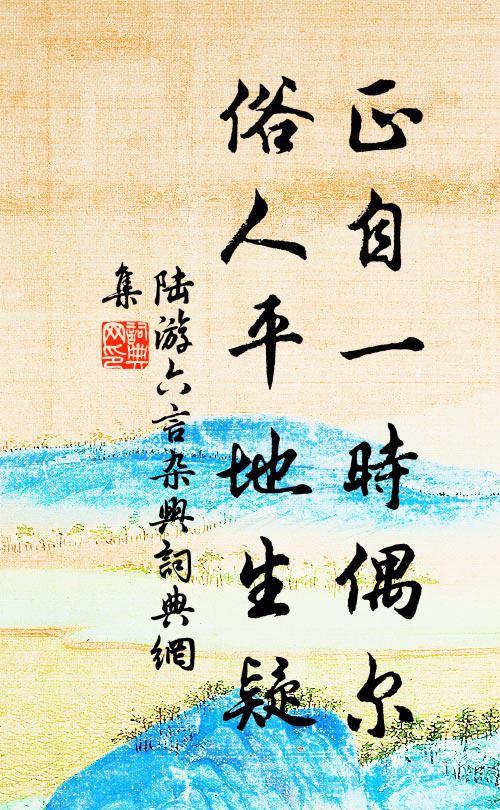 正自一時偶尔
俗人平地生疑
陆游六言杂興詞典網
集
詞典
网印